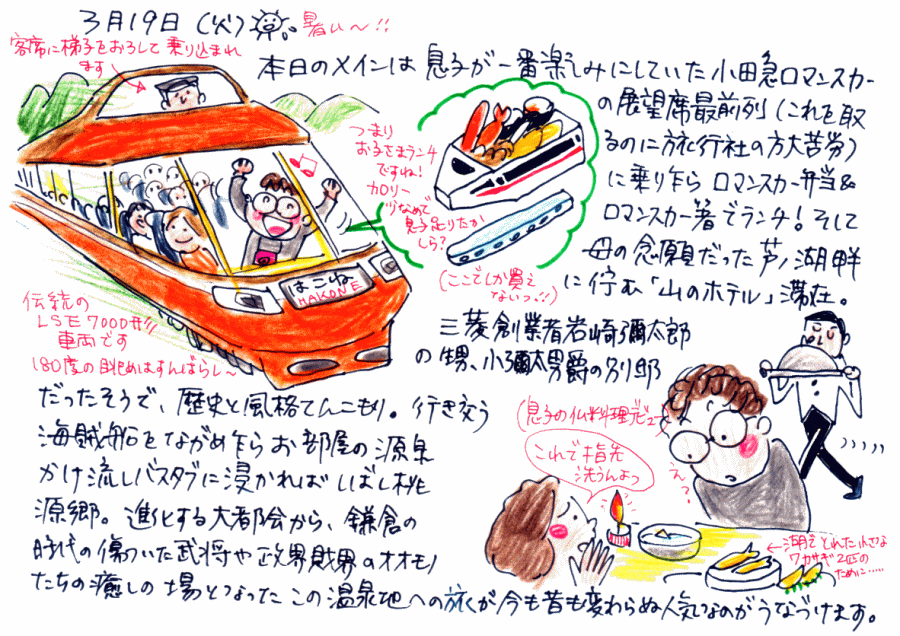 3月19日(火)
暑い〜!!
客席に梯子をおろして乗り込まれ
ます
本日のメインは息子が一番楽しみにしていた小田急ロマンスカー
の展望席最前列(これを取
るのに旅行社の方大苦労)
に乗り乍ら ロマンスカー弁当&
ロマンスカー箸でランチ!そして
母の念願だった芦ノ湖畔
に佇む「山のホテル」滞在。
つまり
お子さまランチ
ですね!
カロリー
少なめで
息子足りたか
しら?
(ここでしか買え
ないっ!!)
はこね
HAKONE
伝統の
LSE7000形
車両です
180度の眺めはすんばらし〜
三菱創業者岩崎彌太郎
の甥、小彌太男爵の別邸
だったそうで、歴史と風格てんこもり。行き交う
海賊船をながめ乍らお部屋の源泉
かけ流しバスタブに浸かればしばし桃
源郷。進化する大都会から、鎌倉の
時代の傷ついた武将や政界財界のオオモノ
たちの癒しの場となったこの温泉地への旅が今も昔も変わらぬ人気なのがうなづけます。
(息子の仏料理デビュー)
これで指先
洗うんよっ
えっ!
←湖でとれた小さな
ワカサギ2匹の
ために……